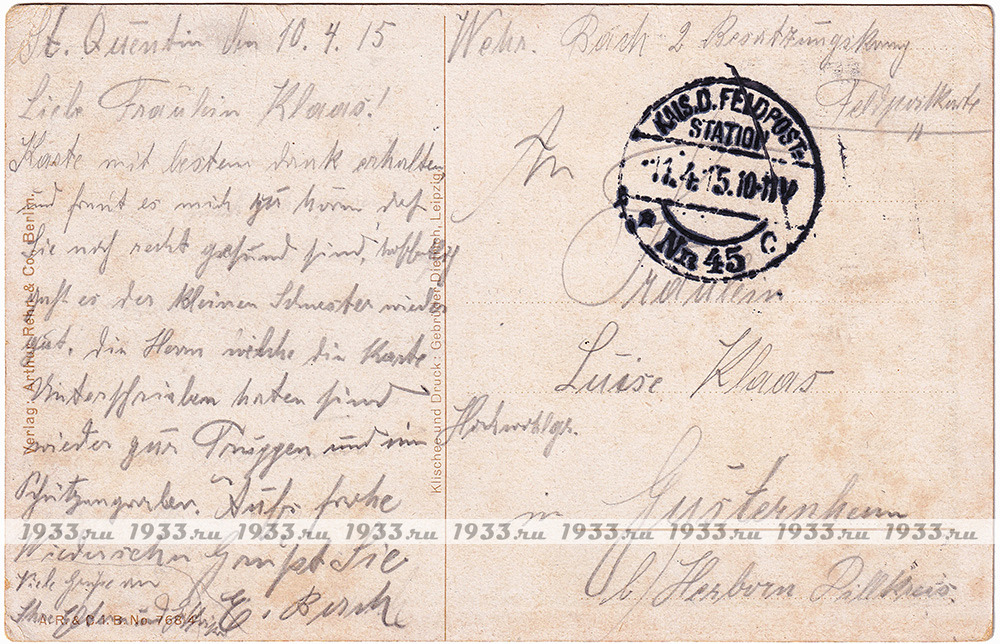 St. Quentin den 10.4.15
Liebe Fräulein Klaas!
Karte mit bestem dank erhalten
und freut es mich zu hören daß
Sie noch recht gesund sind,
geht es der kleinen Schwester wieder
gut. die Herrn welche die Karte
Unterschrieben haben sind
wieder zur Truppen und im
Schützengraben. Aufs frohe
Wiedersehn Grüßt Sie
Viele Grüße an
E.
Wehr. 2
Feldpostkarte
An
Fräulein
Luise Klaas
Hochwohlgr.
in Gusternheim
b/ Herborn Dillkreis.
KAIS. D. FELDPOST-
STATION
11.4.15. 10-11 V
Nr. 45 C
Verlag: Arthur Rehn & Co., Berlin.
Klischee und Druck: Gebrüder Dietrich, Leipzig.
A. R. & C. i. B. No. 768/4
1933.ru 1933.ru 1933.ru 1933.ru 1933.ru 1933.ru 1933.ru 1933.ru 1933.ru